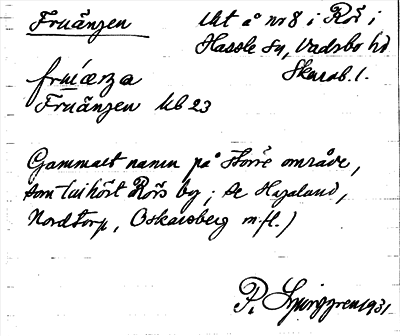 Fruängen
Ukt å nr 8 i Rös i
Hassle sn, Vadsbo hd
Skarab. l.
fruíæŋa
Fruängen Ub 23
Gammalt namn på större område,
som tillhört Rörs by; se Högalund,
Nordtorp, Oskarsberg m.fl.)
P. Ljunggren 1931